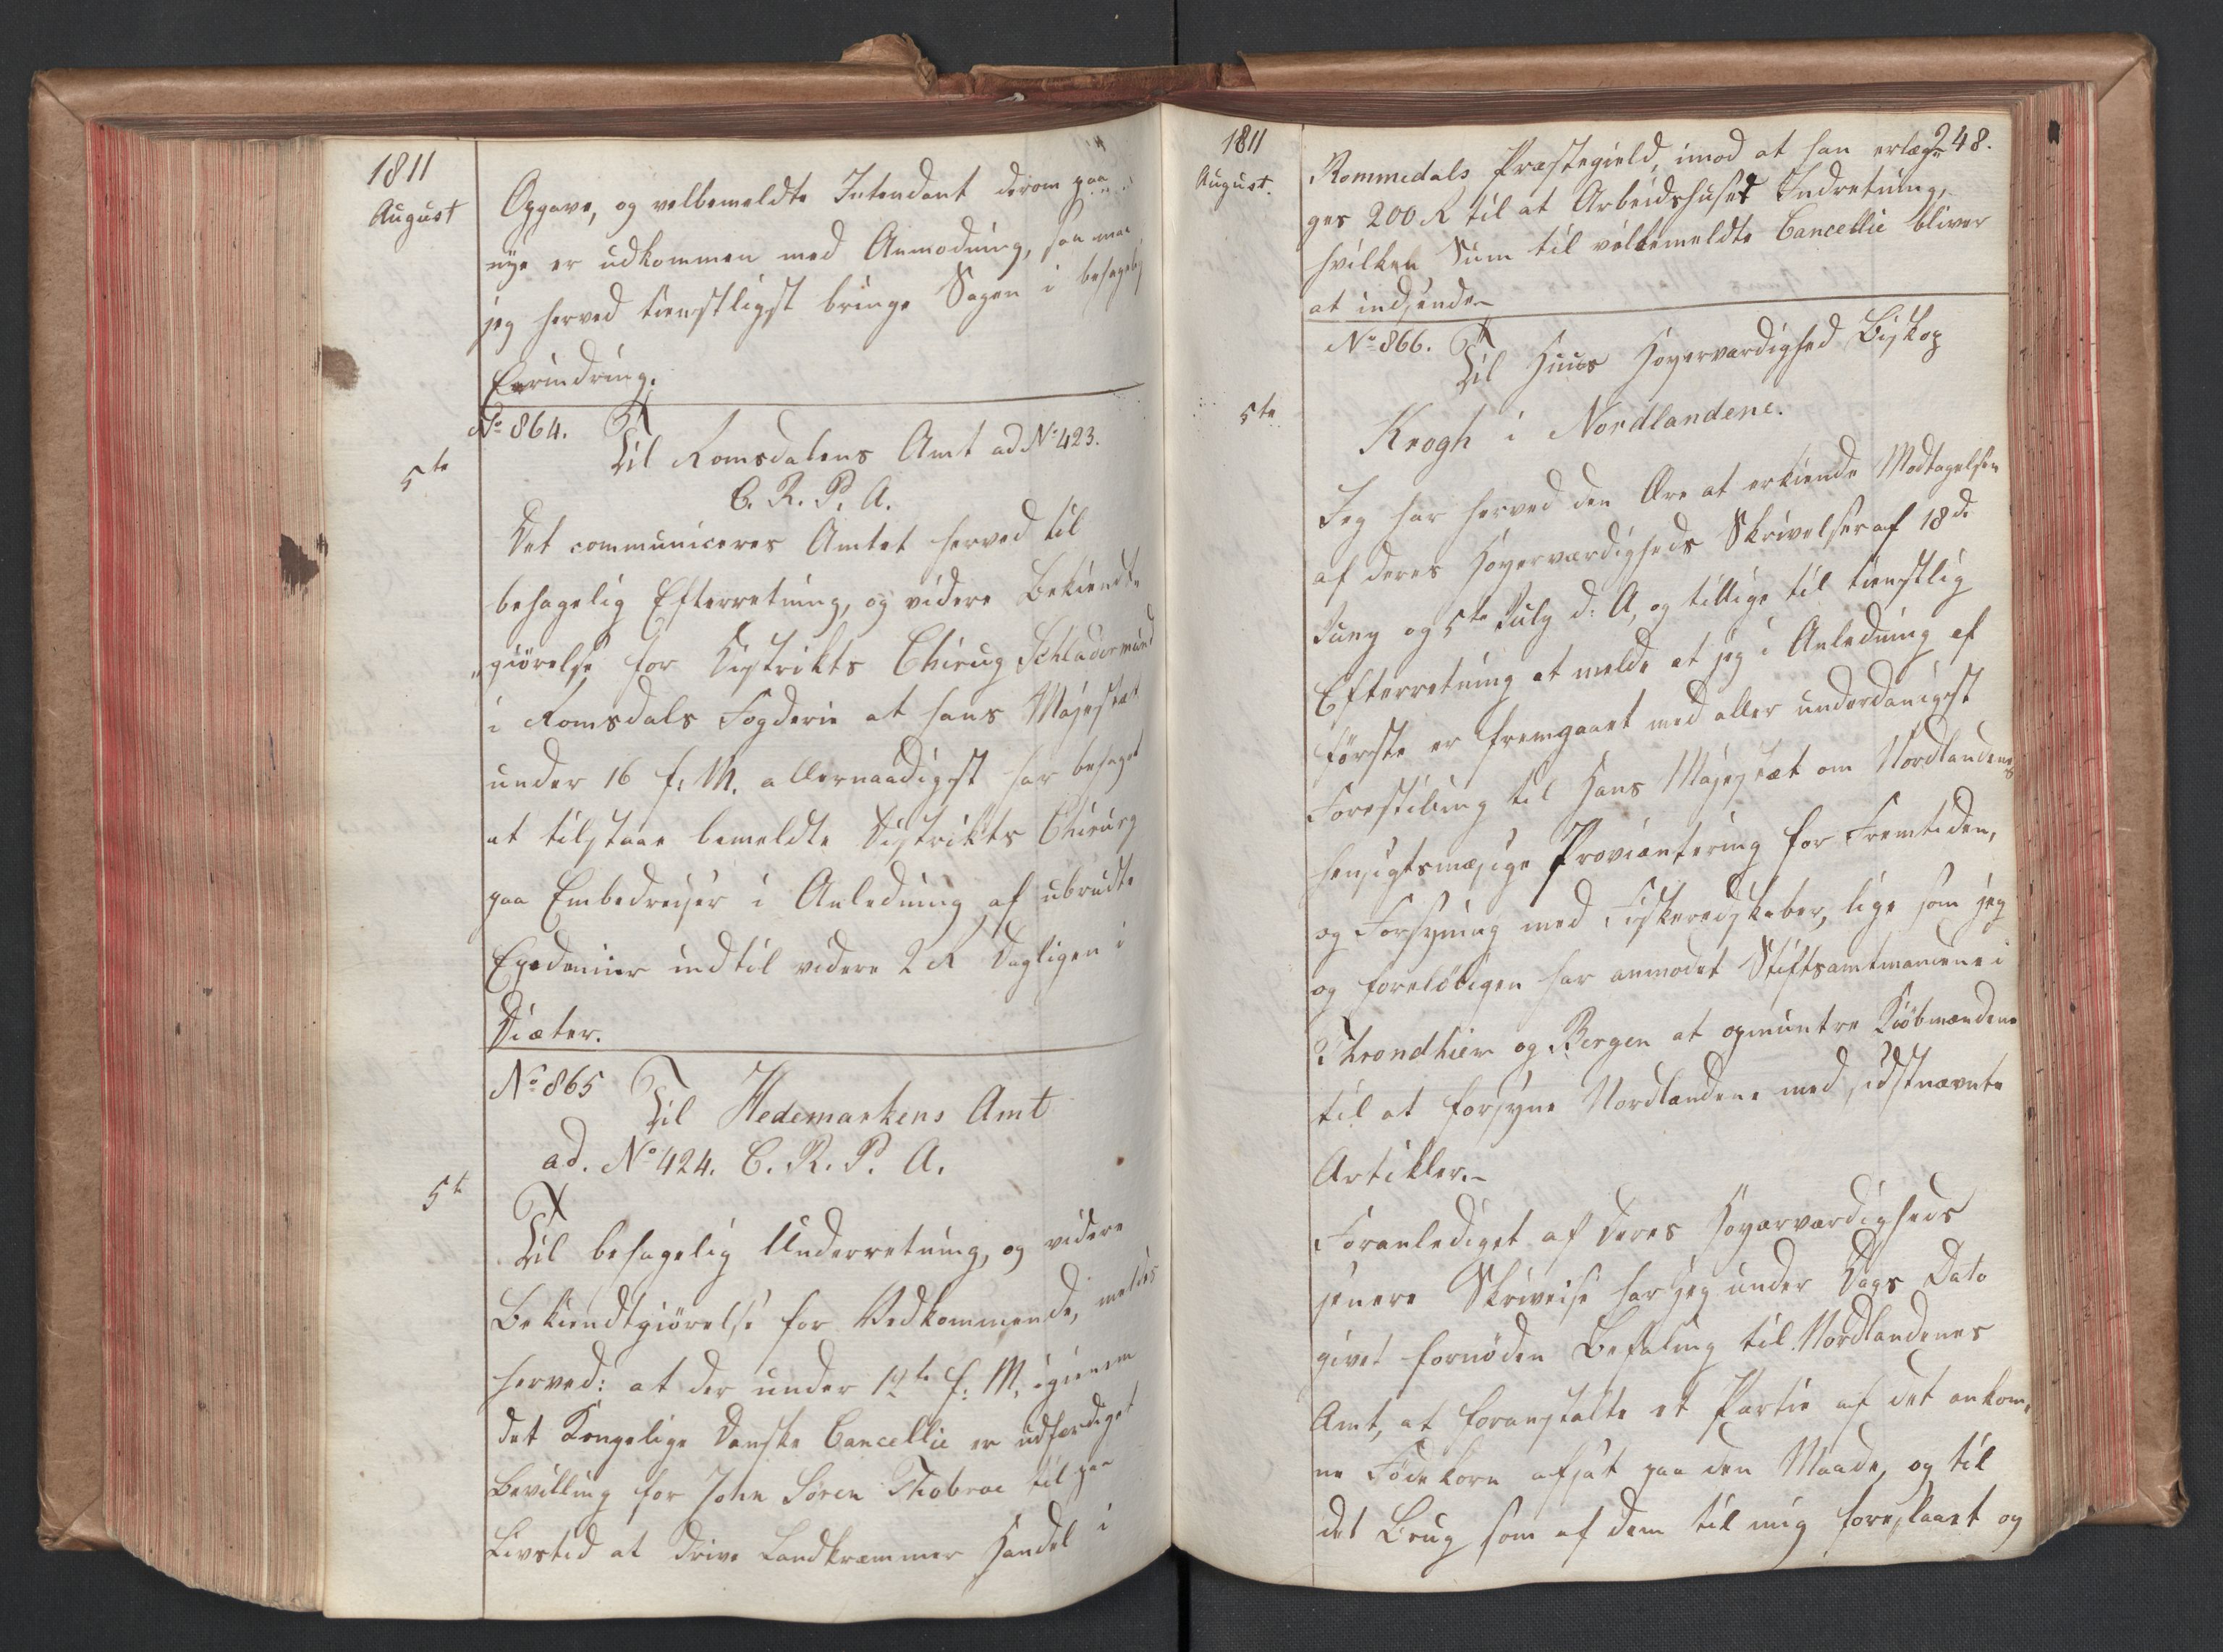 1811
August
Opgave, og velbemeldte Intendant derom paa
nye er udkommen med Anmodning, saa maa
jeg herved tienstligst bringe Sagen i behagelig
Erindring.
No 864.
5te
Til Romsdalens Amt ad No 423.
C. R. P. A.
Det communiceres Amtet herved til
behagelig Efterretning, og videre Bekiendt-
giörelse for Distrikts Chirug Schladermund
i Romsdals Fogderie at hans Majestæt
under 16 f. M. allernaadigst har behaget
at tilstaae bemeldte Distrikts Chirurg
paa Embedreiser i Anledning af ubrudte
Epedemier indtil videre 2 R Dagligen i
Diæter.
No 865
Til Hedemarkens Amt
ad. No 424. C. R. P. A.
5t
Til behagelig Underretning, og videre
Bekiendtgiörelse for Vedkommende, meldes
herved: at der under 12te f. M. igienem
det Kongelige Danske Cancellie er udfærdiget
Bevilling for John Soren Thobroe til paa
Livstid at drive Landkræmmer Handel i
1811
August.
248.
Rommedals Præstegield, imod at han erlæg-
ges 200 R til at Arbeidshuset Indretning,
hvilken Sum til velbemeldte Cancellie bliver
at indsende.
No 866.
Til Hans Höyærværdighed Biskop
5te
Krogh i Nordlandene.
Jeg har herved den Ære at erkiende Modtagelsen
af deres Höyærværdigheds Skrivelser af 18de
Juny og 5te July d: A, og tillige til tienstlig
Efterretning at melde at jeg i Anledning af
förste er fremgaaet med aller underdanigst
Forestilling til Hans Majestæt om Nordlandenes
hensigtsmæsige Proviantering for Fremtiden,
og Forsyning med Fiskeredskaber, lige som jeg
og forelöbigen har anmodet Stiftsamtmændene i
Throndhiem og Bergen at opmuntre Kiöbmændene
til at forsyne Nordlandene med sidstnævnte
Artikler.
Foranlediget af Deres Höyærværdigheds
senere Skrivelse har jeg under Dags Dato
givet fornöden Befaling til Nordlandenes
Amt, at foranstalte et Partie af det ankom-
ne Födekorn afsat paa den Maade, og til
det Brug som af dem til mig foreslaaet og